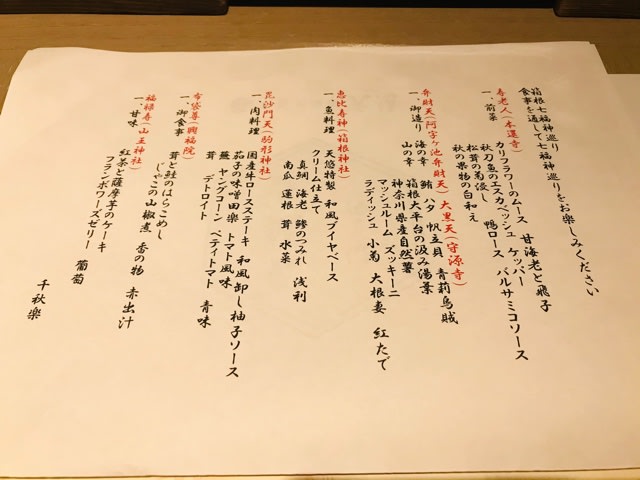 箱根七福神巡り
食事を通して七福神巡りをお楽しみください
寿老人(本還寺)
一、前菜
カリフラワーのムース 甘海老と飛子
秋刀魚のエスカベッシュ ケッパー
松茸の菊浸し 鴨ロース バルサミコソース
秋の果物の白和え
弁財天(阿字ヶ池弁財天) 大黒天(守源寺)
一、御造り 海の幸 鮪 ハタ 帆立貝 青莉烏賊
山の幸 箱根大平台の汲み湯葉
神奈川県産自然薯
マッシュルーム ズッキーニ
ラディッシュ 小菊 大根妻 紅たで
恵比寿神(箱根神社)
一、魚料理 天悠特製 和風ブイヤベース
クリーム仕立て
真鯛 海老 鯵のつみれ 浅利
南瓜 蓮根 茸 水菜
毘沙門天(駒形神社)
一、肉料理 国産牛ロースステーキ 和風卸し柚子ソース
茄子の味噌田楽 トマト風味
蕪 ヤングコーン ペティトマト 青味
茸 デトロイト
布袋尊(興福院)
一、御食事 茸と鮭のはらこめし
じゃこの山椒煮 香の物 赤出汁
福禄寿(山王神社)
一、甘味 紅茶と薩摩芋のケーキ
フランボワーズゼリー 葡萄
千秋楽